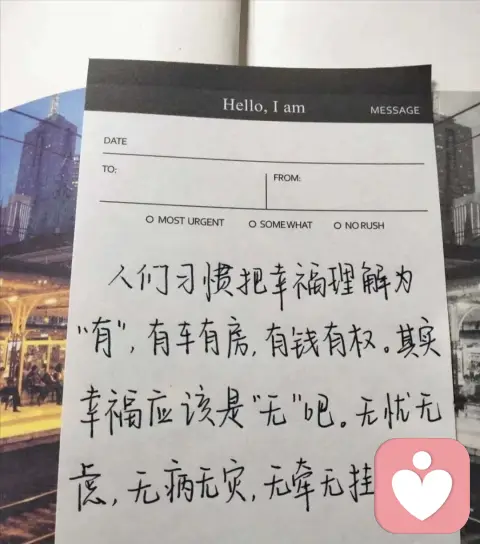 Hello, I am
MESSAGE
DATE
TO:
FROM:
MOST URGENT
SOMEWHAT
NO RUSH
人们习惯把幸福理解为
“有”,有车有房,有钱有权。其实
幸福应该是“无”吧。无忧无
虑,无病无灾,无牵无挂